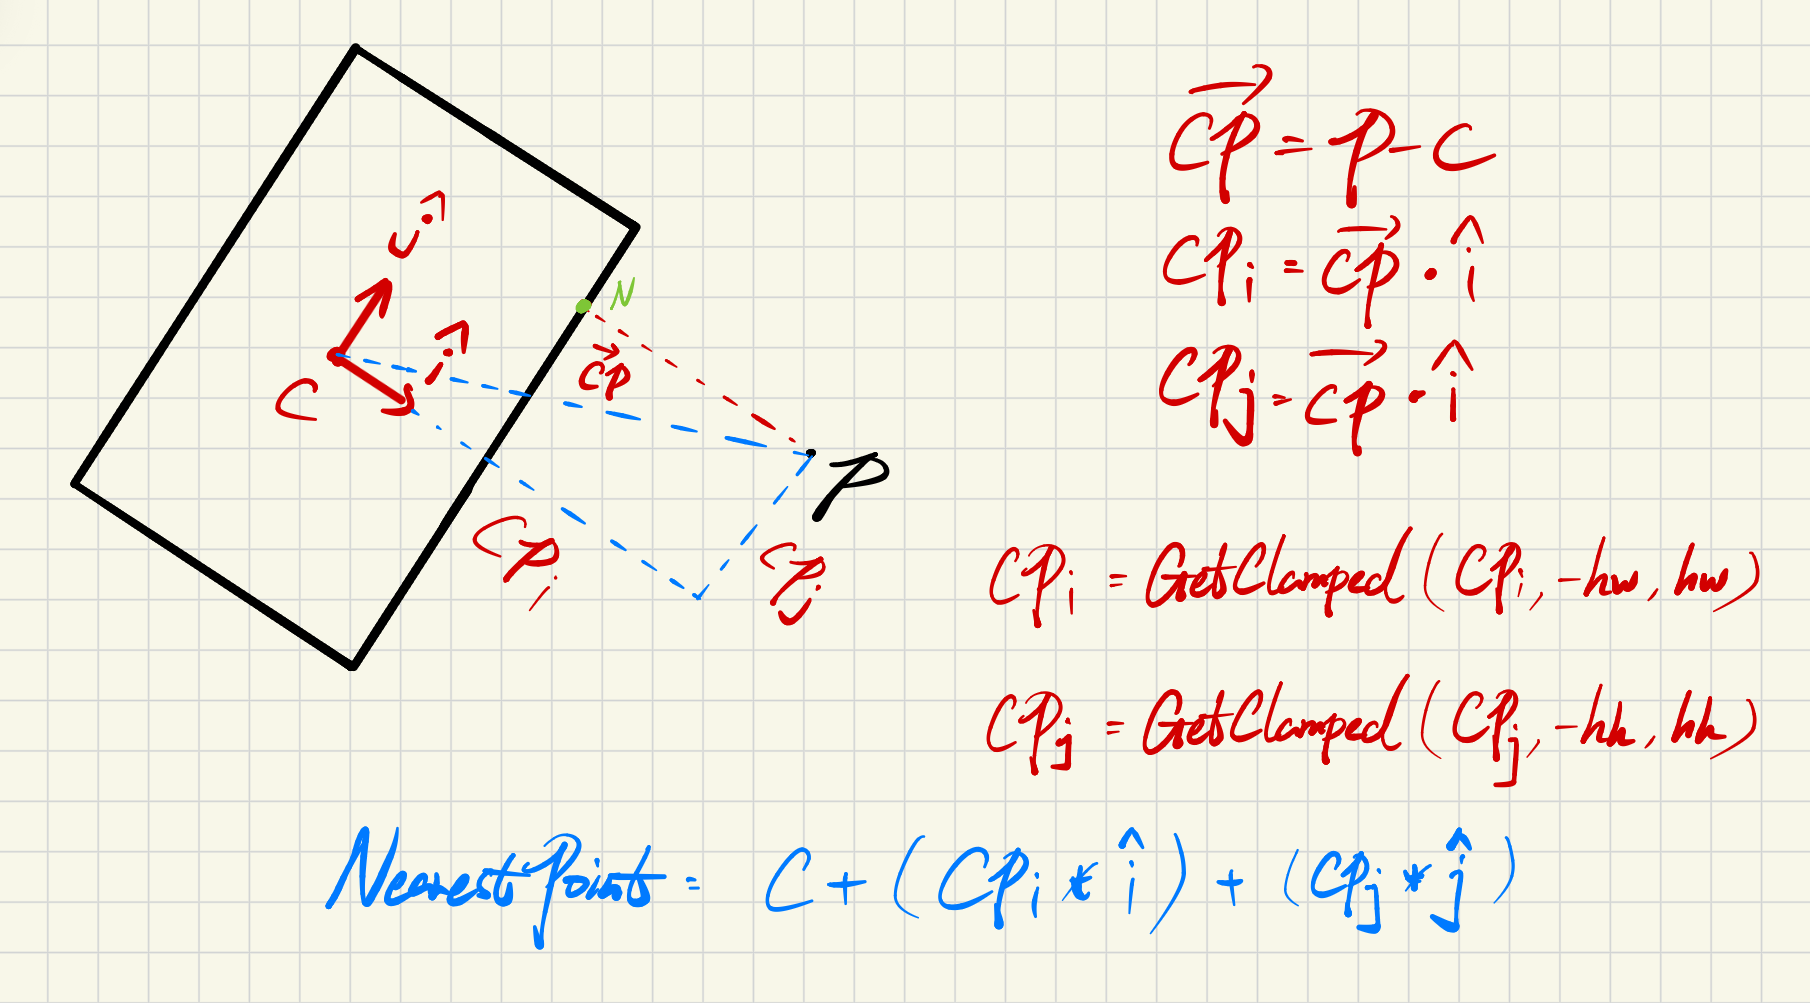 $\overrightarrow{CP} = P - C$
$CP_i = \overrightarrow{CP} \cdot \hat{i}$
$CP_j = \overrightarrow{CP} \cdot \hat{i}$
$\hat{j}$
N
$\hat{i}$
$\overrightarrow{CP}$
C
P
$CP_i$
$CP_j$
$CP_i$ = GetClamped($CP_i$, -hw, hw)
$CP_j$ = GetClamped($CP_j$, -hh, hh)
NearestPoints = C + ($CP_i$ * $\hat{i}$) + ($CP_j$ * $\hat{j}$)